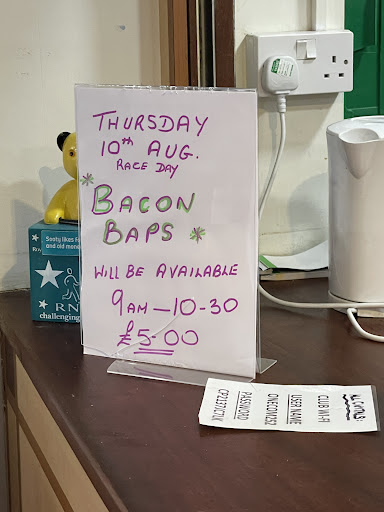 THURSDAY
10th AUG.
RACE DAY
* BACON
BAPS *
WILL BE AVAILABLE
9AM - 10-30
£5.00
Sooty likes
and old mone
RN
challenging
WELCOME:
CLUB WI-FI
USER NAME
ONECOM252
PASSWORD